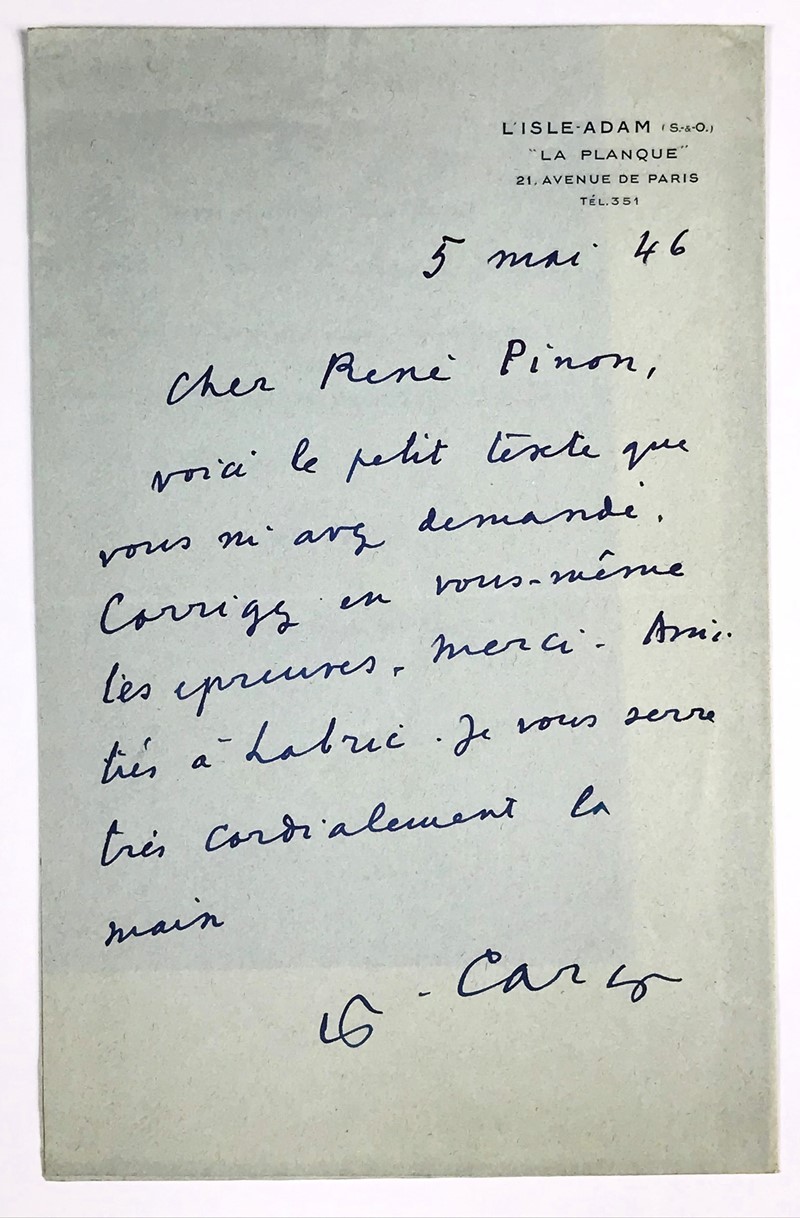 L'ISLE-ADAM (S.-&-O.)
"LA PLANQUE"
21, AVENUE DE PARIS
TÉL. 351
5 mai 46
Cher René Pinon,
voici le petit texte que
vous m'avez demandé.
Corrigez en vous-même
les épreuves. Merci. Ami-
tiés à Labric. Je vous serre
très cordialement la
main
Carco